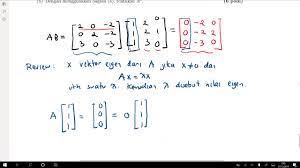 (b) Dengan menggunakan bagian (a), buktikan A
AB = [2 0 -2; 0 2 -2; 3 0 -3] [1 2 1; 1 2 0; 1 3 0] = [0 -2 0; 0 -2 2; 0 -3 0]
Review: x vektor eigen dari A jika x ≠ 0 dan
Ax = λx
utk suatu λ. Kemudian λ disebut nilai eigen.
A [1; 1; 1] = [0; 0; 0] = 0 [1; 1; 1]